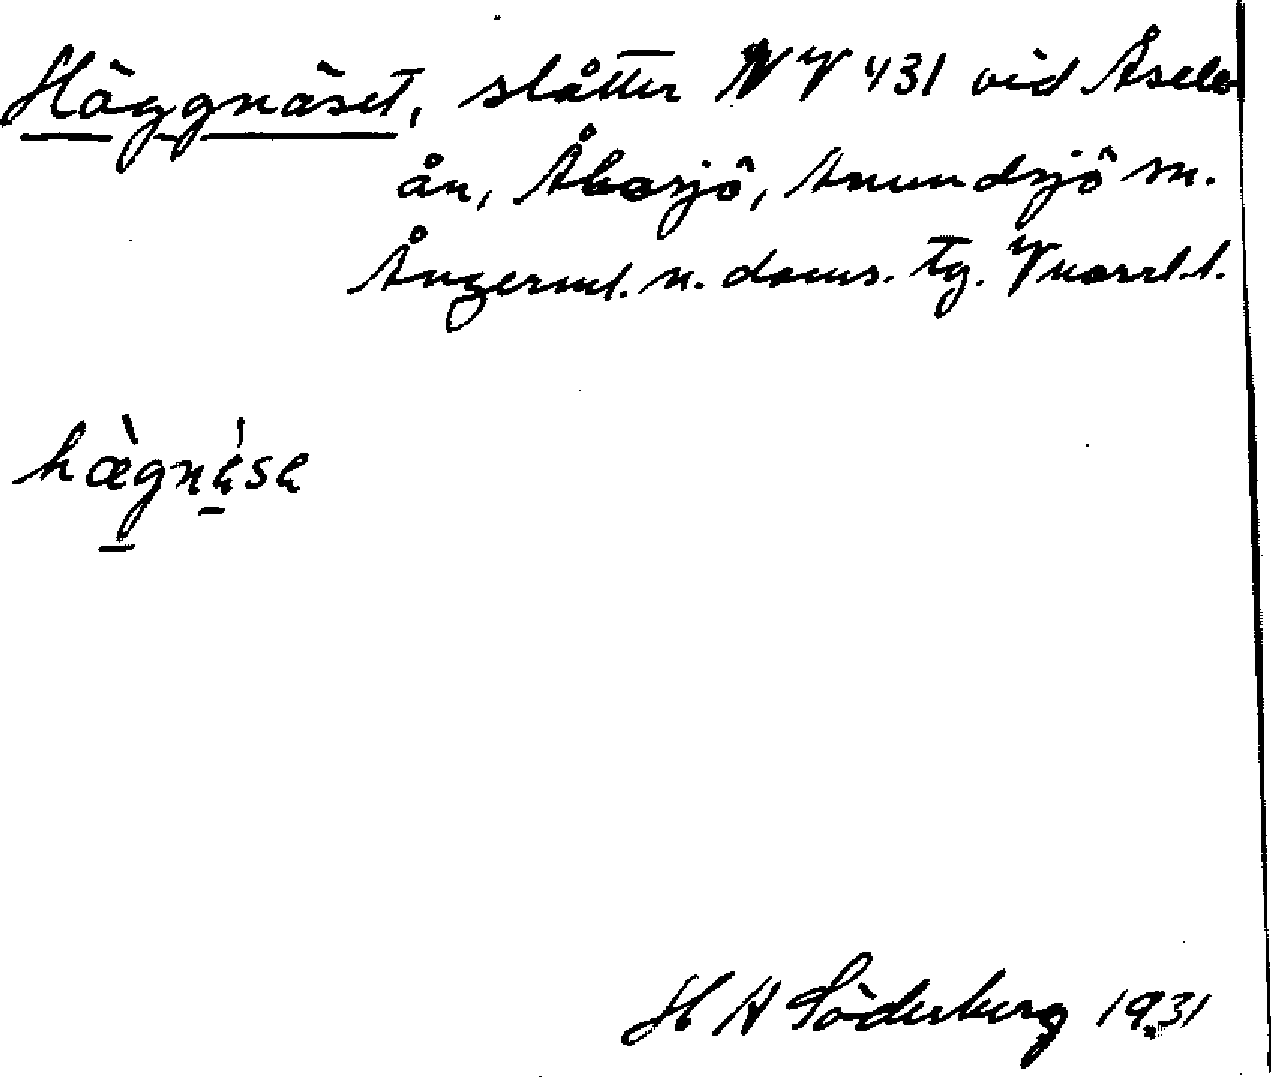 Häggnäset, slåtter NV 431 vid Åsele
ån, Åbosjö, Anundsjö sn.
Ångerml. n. doms. tg. Vnorrl. l.
hægnése
H A Söderberg 1931